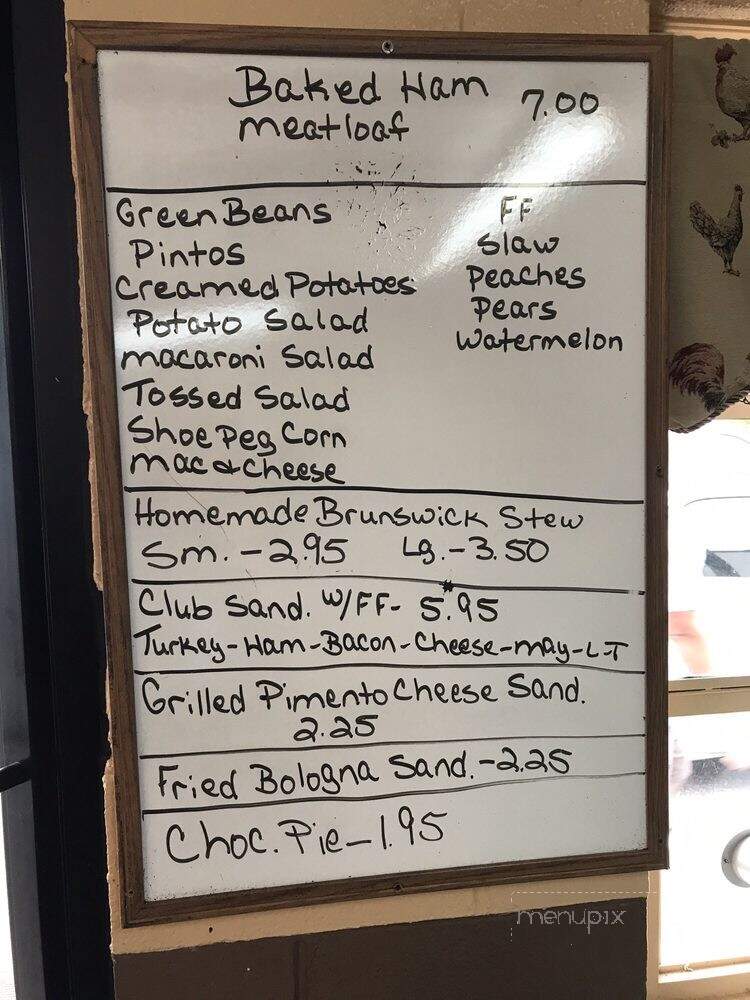 Baked Ham 7.00
meatloaf
Green Beans
Pintos
Creamed Potatoes
Potato Salad
macaroni Salad
Tossed Salad
Shoe Peg Corn
mac & Cheese
FF
Slaw
Peaches
Pears
Watermelon
Homemade Brunswick Stew
Sm. - 2.95 Lg. - 3.50
Club Sand. W/FF - 5.95
Turkey - Ham - Bacon - Cheese - may - L - T
Grilled Pimento Cheese Sand.
2.25
Fried Bologna Sand. - 2.25
Choc. Pie - 1.95
menupix